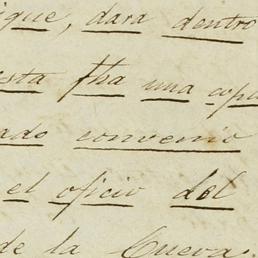 ique, dara dentro
esta fha una copia
ado convenio
el oficio del
de la Cueva.